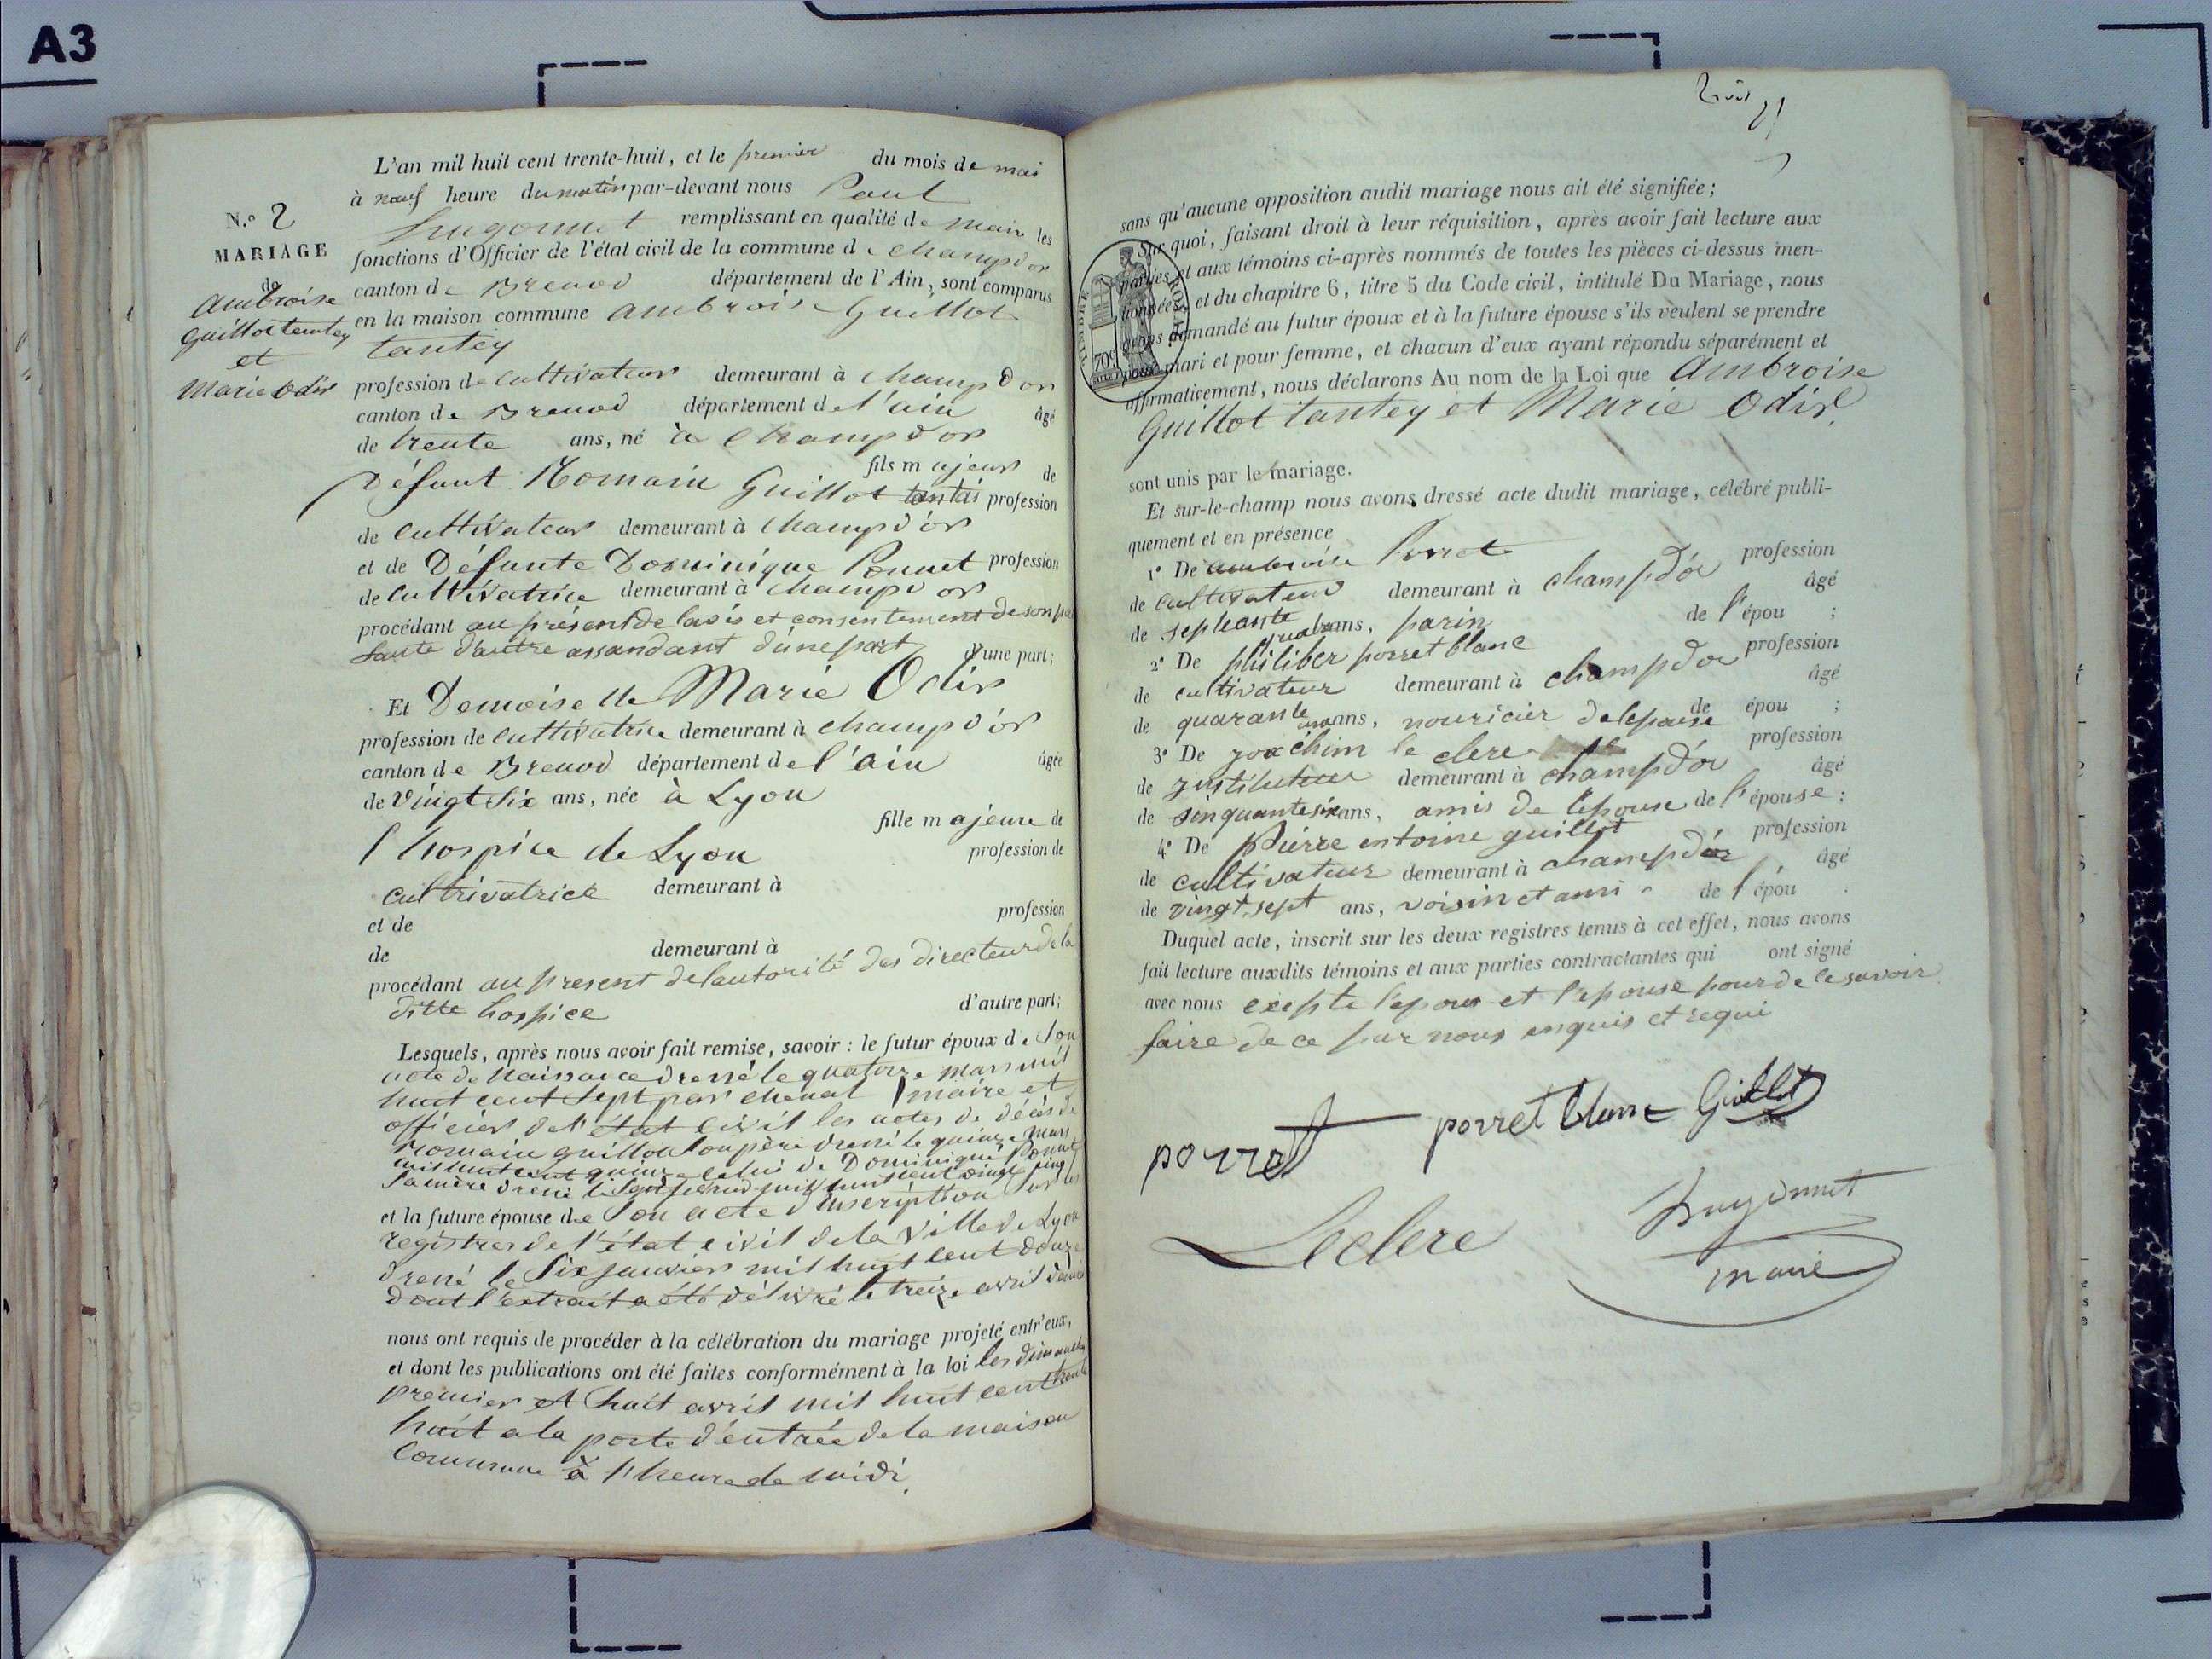 A3
N.° 2
MARIAGE
de
Ambroise
Guillot tantey
et
Marie Odis
L'an mil huit cent trente-huit, et le premier du mois de mai
à neuf heure du matin par-devant nous Paul
remplissant en qualité de maire les
fonctions d'Officier de l'état civil de la commune de champdor
canton de Brenod département de l'Ain, sont comparus
en la maison commune ambroise Guillot
tantey
profession de cultivateur demeurant à champdor
canton de Brenod département de l'ain âgé
de trente ans, né à champdor
fils majeur de
Défunt Romain Guillot profession
de cultivateur demeurant à champd'or
et de Défunte Dominique Ponnet profession
de cultivatrice demeurant à champd'or
procédant au présent de lavis et consentement de son
d'autre assandant d'une part d'une part;
Et Demoiselle Marie Odis
profession de cultivatrice demeurant à champd'or
canton de Brenod département de l'ain âgée
de vingt six ans, née à Lyon
fille majeure de
l'hospice de Lyon profession de
cultrivatrice demeurant à
et de profession
de demeurant à
procédant au present de lautorité des directeur de la
ditte hospice d'autre part;
Lesquels, après nous avoir fait remise, savoir : le futur époux de son
acte de naissance dressé le quatorze mars mil
huit cent sept par maire et
officier de l'état civil les actes de décès de
Romain guillot son père dressé le quinze mars
mil huit cent quinze celui de Dominique Ponnet
sa mère dressé le huit cent vingt cinq
et la future épouse de son acte d'inscription sur les
registres de l'état civil de la ville de Lyon
dressé le six janvier mil huit cent douze
dont l'extrait a été délivré le treize avril
nous ont requis de procéder à la célébration du mariage projeté entr'eux,
et dont les publications ont été faites conformément à la loi les dimanches
premier et huit avril mil huit cent trente
huit a la porte d'entrée de la maison
commune à l'heure de midi.
sans qu'aucune opposition audit mariage nous ait été signifiée;
Sur quoi, faisant droit à leur réquisition, après avoir fait lecture aux
parties et aux témoins ci-après nommés de toutes les pièces ci-dessus men-
tionnées et du chapitre 6, titre 5 du Code civil, intitulé Du Mariage, nous
avons demandé au futur époux et à la future épouse s'ils veulent se prendre
pour mari et pour femme, et chacun d'eux ayant répondu séparément et
affirmativement, nous déclarons Au nom de la Loi que Ambroise
Guillot tantey et Marie Odis
TIMBRE ROYAL
70c
sont unis par le mariage.
Et sur-le-champ nous avons dressé acte dudit mariage, célébré publi-
quement et en présence
1° De ambroise Porret profession
de cultivateur demeurant à champd'or âgé
de septante ans, parin de l'épou ;
2° De philiber porret blanc profession
de cultivateur demeurant à champdor âgé
de quarante ans, nouricier de lepouse de épou ;
3° De joachim le clerc profession
de justituteur demeurant à champd'or âgé
de sinquante six ans, amis de l'epouse de l'épouse ;
4° De Pierre entoine guillot profession
de cultivateur demeurant à champd'or âgé
de vingt sept ans, voisin et ami de l'épou
Duquel acte, inscrit sur les deux registres tenus à cet effet, nous avons
fait lecture auxdits témoins et aux parties contractantes qui ont signé
avec nous exepte l'epoux et l'epouse pour de le savoir
faire de ce par nous enquis et requi
porret porret blanc Guillot
Leclerc
maire